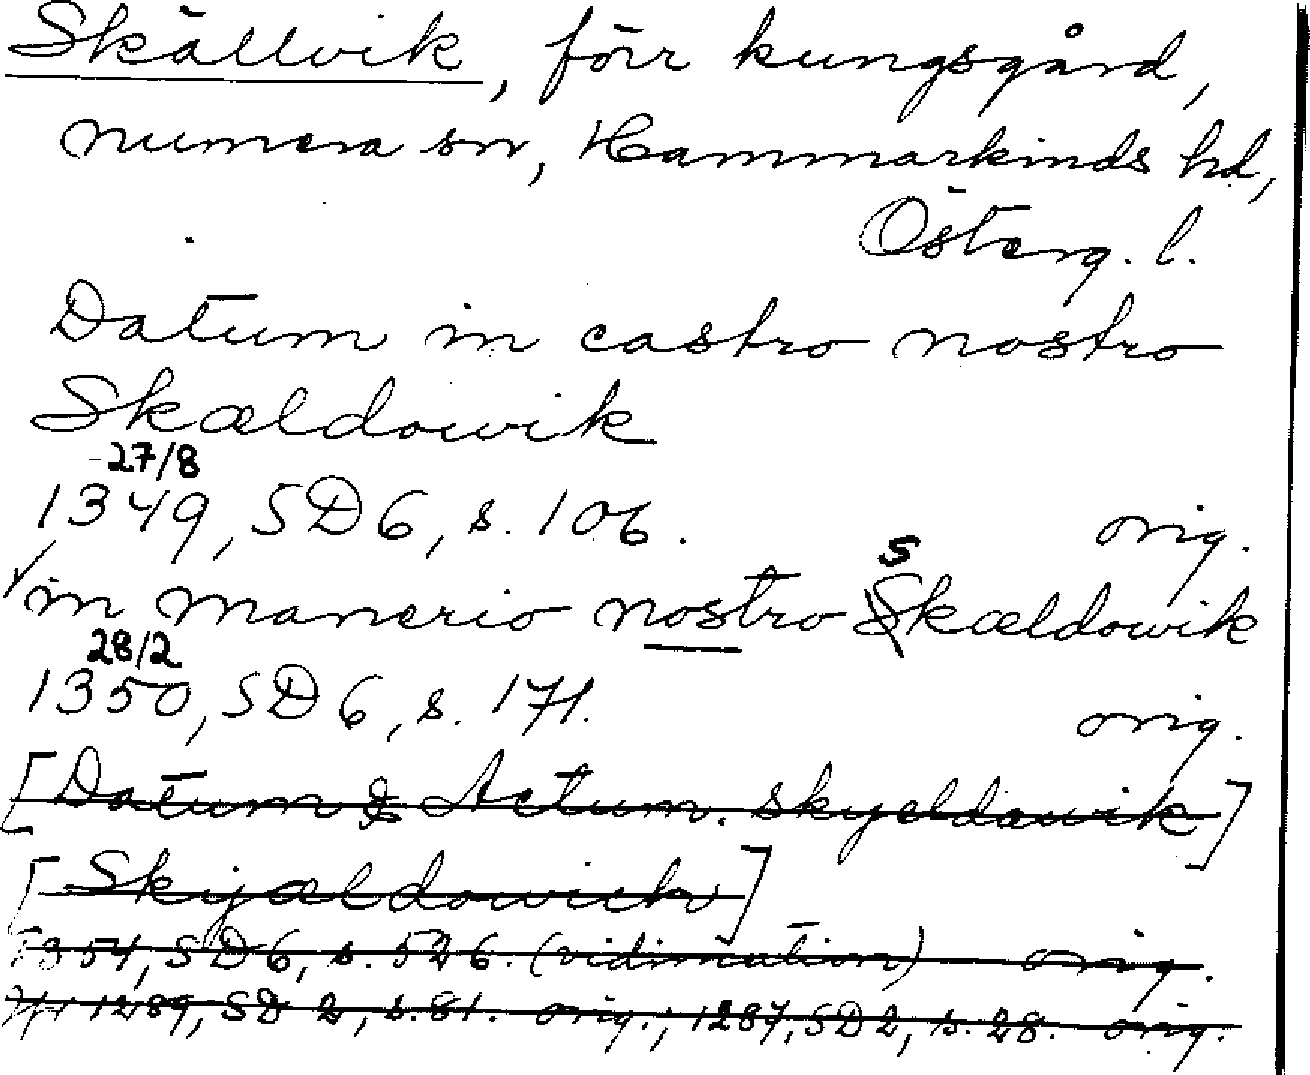 Skällvik, förr kungsgård,
numera sn, Hammarkinds hd,
Österg. l.
Datum in castro nostro
Skældowik
27/8
1349, SD 6, s. 106. orig.
s
in manerio nostro Skældowik
28/2
1350, SD 6, s. 171. orig.
[Datum & Actum. Skyældawik]
[Skyældowich]
1354, SD 6, s. 526. (vidimation) orig.
1289, SD 2, s. 81. orig.; 1287, SD 2, s. 28. orig.